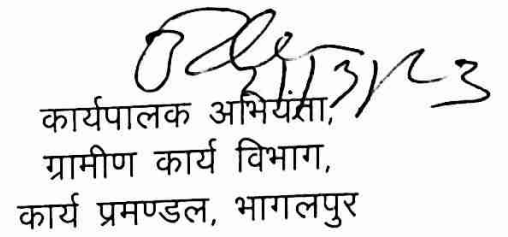 कार्यपालक अभियंता,
ग्रामीण कार्य विभाग,
कार्य प्रमण्डल, भागलपुर